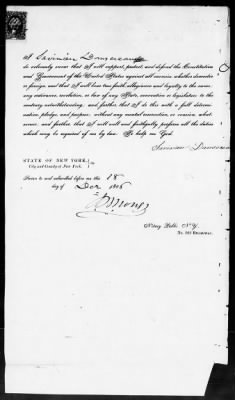 I Savinien
do solemnly swear that I will support, protect and defend the Constitution
and Government of the United States against all enemies whether domestic
or foreign, and that I will bear true faith, allegiance and loyalty to the same,
any ordinance, resolution, or law of any State, convention or legislature to the
contrary notwithstanding, and further, that I do this with a full determi-
nation, pledge, and purpose, without any mental reservation, or evasion what-
soever, and further, that I will well and faithfully perform all the duties
which may be required of me by law. So help me God.
Savinien
STATE OF NEW YORK,
City and County of New York.
Sworn to and subscribed before me this 18
day of Dec
Notary Public N.Y.
BROADWAY.